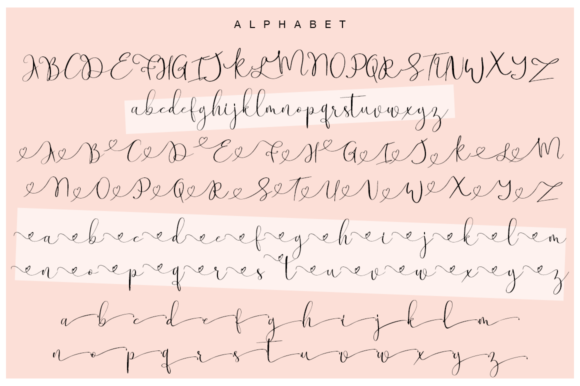 ALPHABET
ABCDEFHGIJKLMNOPQRSTUVWXYZ
abcdefghijklmnopqrstuvwxyz
A B C D E F H G I J K L M
N O P Q R S T U V W X Y Z
a b c d e f g h i j k l m
n o p q r s t u v w x y z
a b c d e f g h i j k l m
n o p q r s t u v w x y z